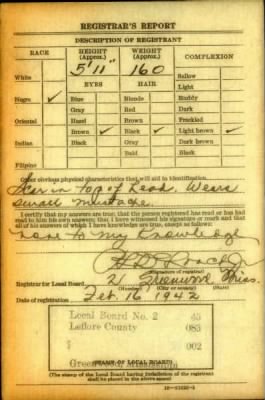 REGISTRAR'S REPORT
DESCRIPTION OF REGISTRANT
RACE HEIGHT (Approx.) WEIGHT (Approx.) COMPLEXION
5' 11" 160
White Sallow
EYES HAIR Light
Negro ✓ Blue Blonde Ruddy
Gray Red Dark
Oriental Hazel Brown Freckled
Brown ✓ Black ✓ Light brown ✓
Indian Black Gray Dark brown
Bald Black
Filipino
Other obvious physical characteristics that will aid in identification
Scar in top of head. Wears
small mustache.
I certify that my answers are true; that the person registered has read or has had
read to him his own answers; that I have witnessed his signature or mark and that
all of his answers of which I have knowledge are true, except as follows:
to my Knowledge
(Signature of registrar)
Registrar for Local Board 21 Greenwood Miss.
(Number) (City or county) (State)
Date of registration Feb. 16, 1942
Local Board No. 2 45
Leflore County 083
002
Greenwood, Mississippi
(STAMP OF LOCAL BOARD)
(The stamp of the Local Board having jurisdiction of the registrant
shall be placed in the above space.)